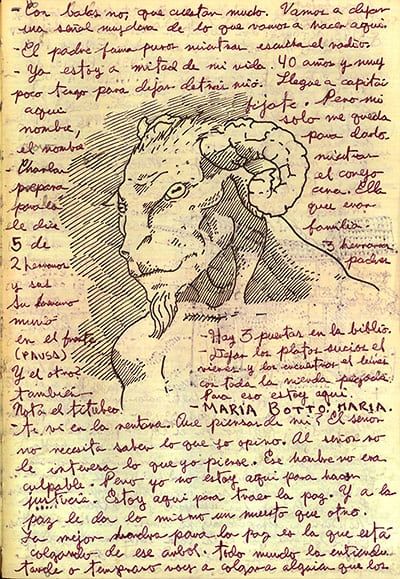 - Con balas no, que cuestan mucho. Vamos a dejar
una señal muy clara de lo que vamos a hacer aquí.
- El padre fuma puros mientras escucha el radio.
- Ya estoy a mitad de mi vida. 40 años y muy
poco tengo para dejar detrás mío. Llegue a capitán
aqui fijate. Pero mi
nombre, solo me queda
el nombre para darlo
- Charlar mientras
prepara el conejo
para la cena. Ella
le dice que eran
5 de familia
2 hermanos 3 hermanas
y sus padres
Su hermano
murió
en el frente
(PAUSA)
Y el otro?
también
Nota el titubeo.
- Hay 3 puertas en la biblio.
- Dejar los platos sucios el
viernes y los encuentras el lunes
con toda la mierda pegada.
Para eso estoy aquí.
MARÍA BOTTO: MARIA.
- te vi en la ventana. Qué piensas de mi? El señor
no necesita saber lo que yo opino. Al señor no
le interesa lo que yo piense. Ese hombre no era
culpable. Pero yo no estoy aquí para hacer
justicia. Estoy aquí para traer la paz. Y a la
paz le da lo mismo un muerto que otro.
La mejor para la paz es la que está
colgando de ese arbol. todo mundo la entiende
tarde o temprano vas a colgar a alguien que los